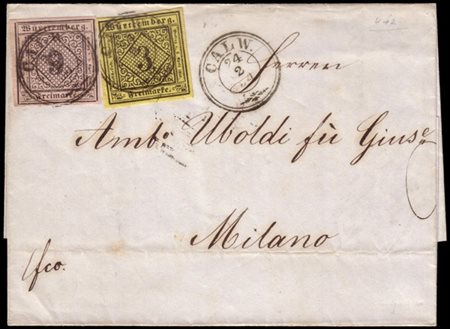 Württemberg.
9
Freimarke.
Württemberg.
3
Freimarke.
CALW.
24
2
Herren
Amb.º Uboldi fù Giuse.e
Milano
fco.